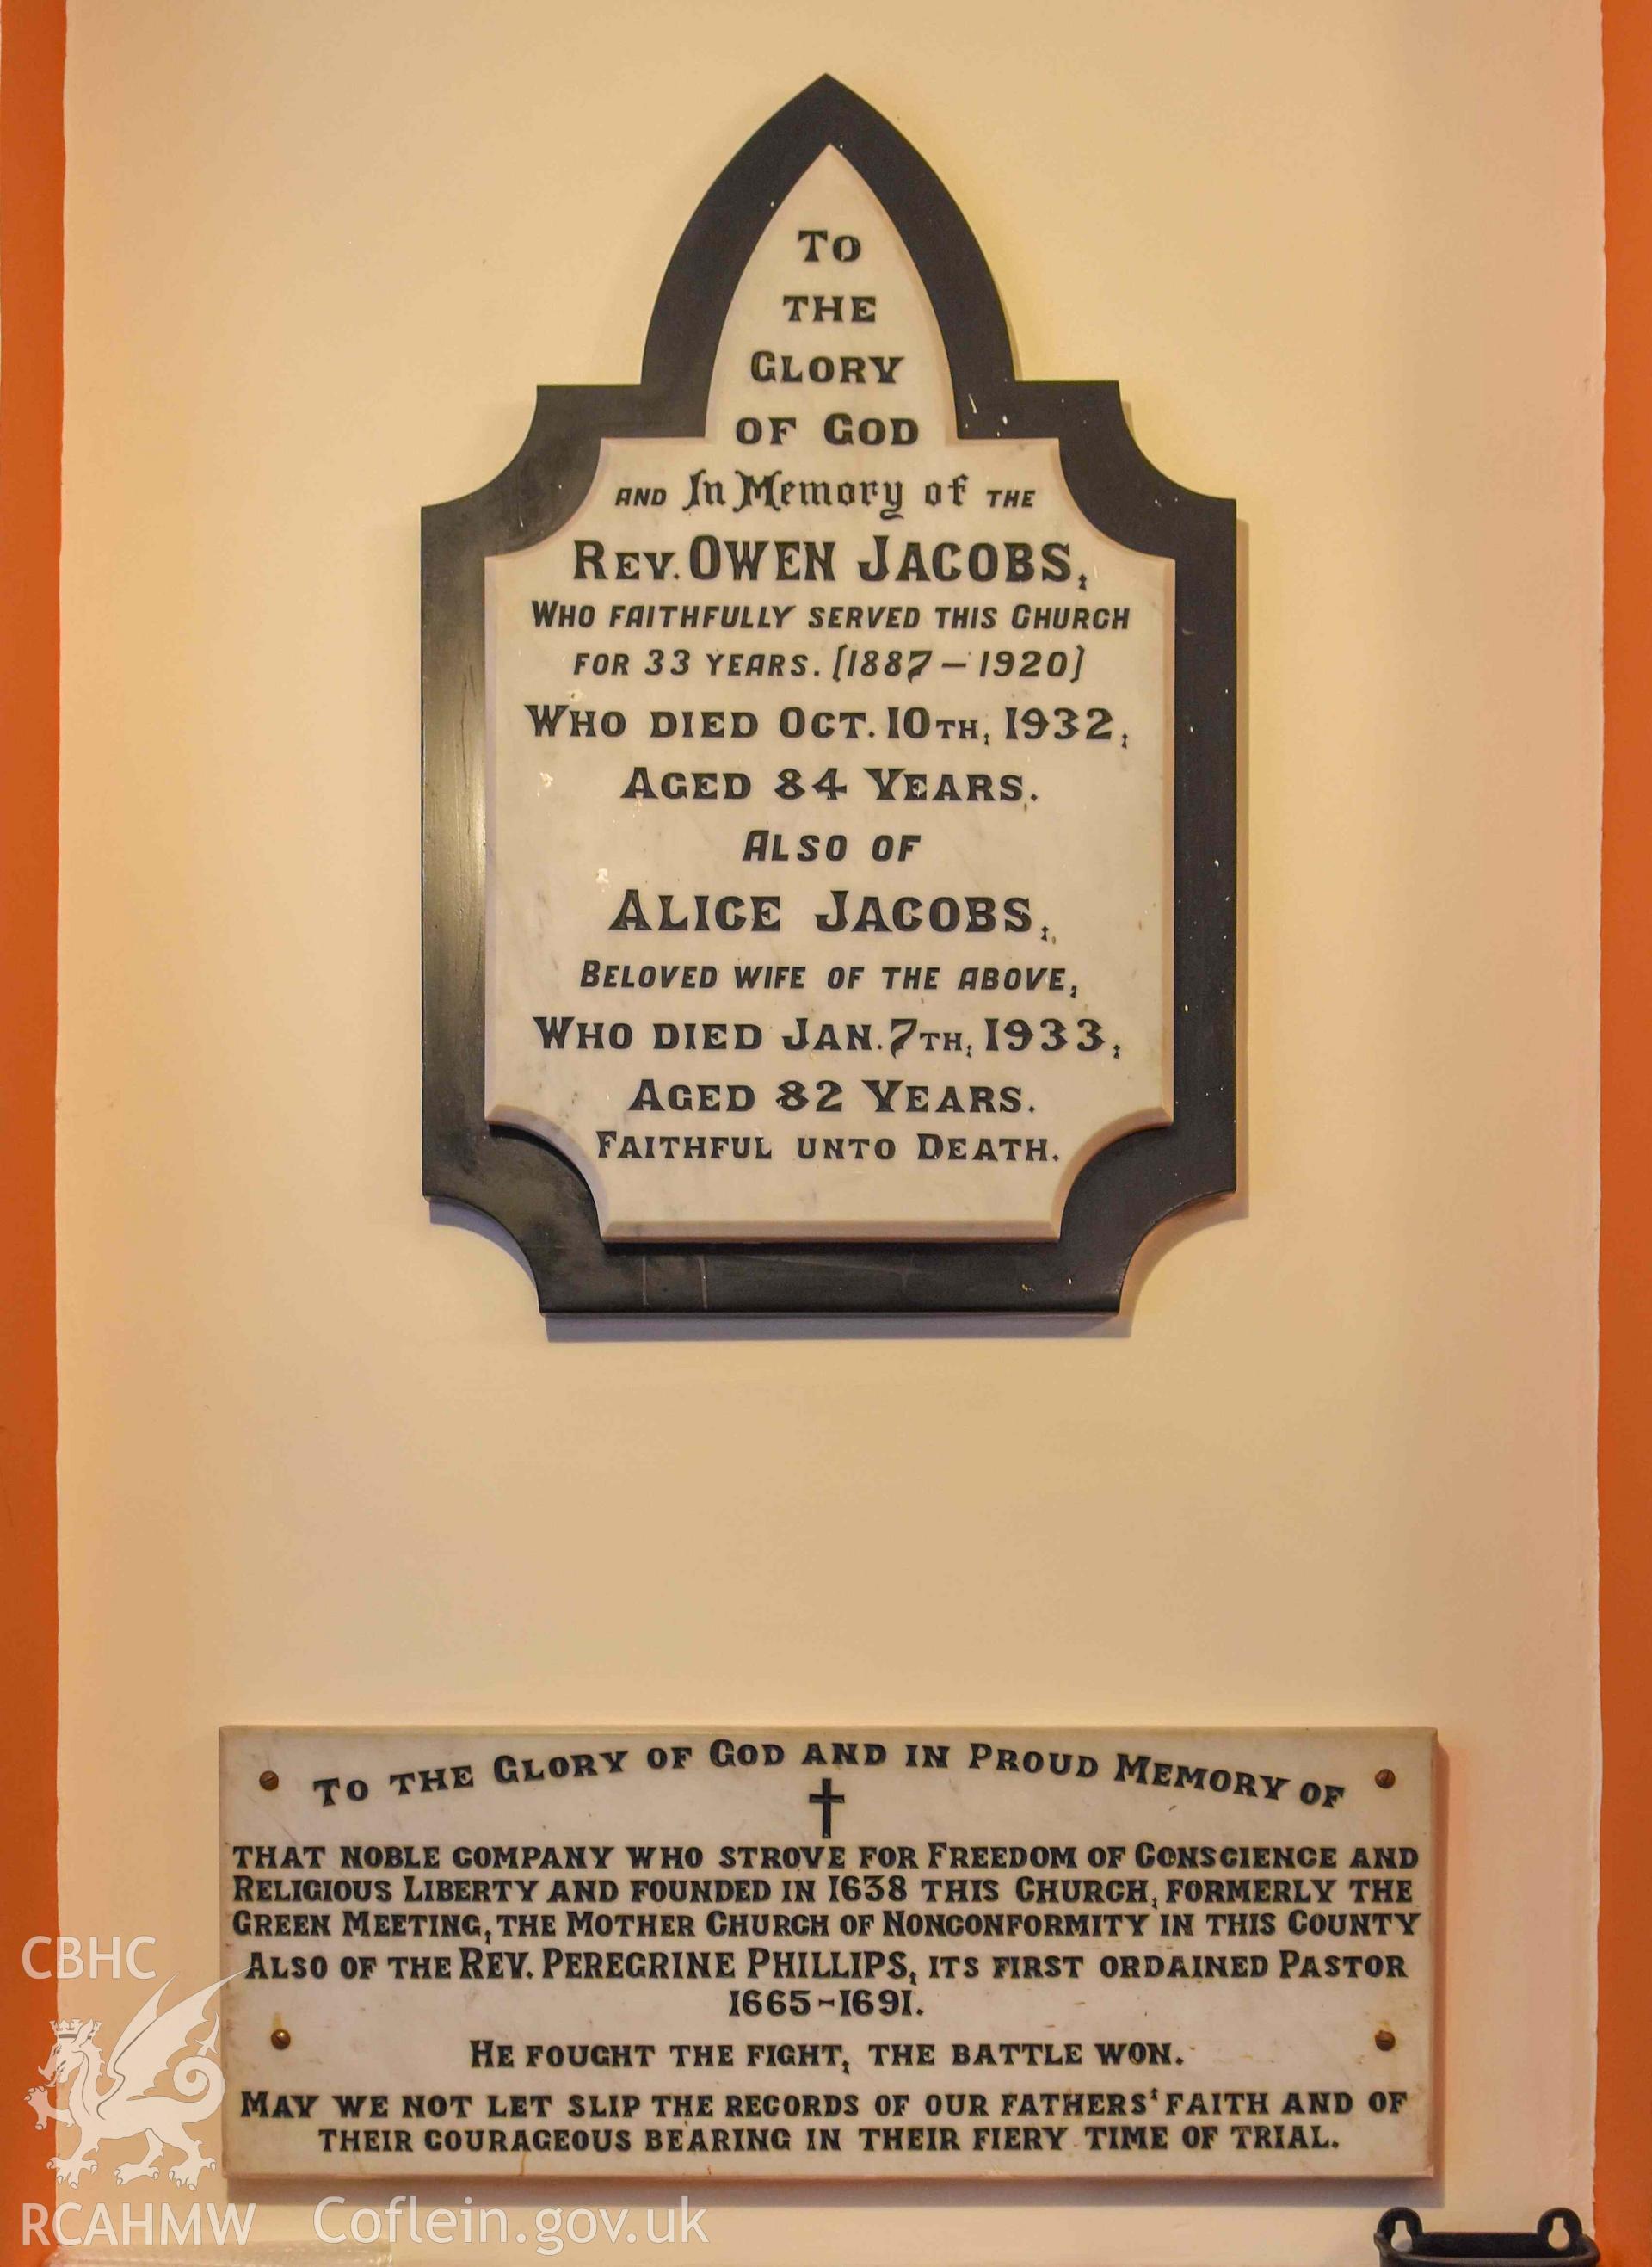 To
THE
GLORY
OF GOD
AND In Memory of THE
REV. OWEN JACOBS,
WHO FAITHFULLY SERVED THIS CHURCH
FOR 33 YEARS. (1887 – 1920)
WHO DIED OCT. 10TH, 1932,
AGED 84 YEARS.
ALSO OF
ALICE JACOBS,
BELOVED WIFE OF THE ABOVE,
WHO DIED JAN. 7TH, 1933,
AGED 82 YEARS.
FAITHFUL UNTO DEATH.
TO THE GLORY OF GOD AND IN PROUD MEMORY OF
THAT NOBLE COMPANY WHO STROVE FOR FREEDOM OF CONSCIENCE AND
RELIGIOUS LIBERTY AND FOUNDED IN 1638 THIS CHURCH, FORMERLY THE
GREEN MEETING, THE MOTHER CHURCH OF NONCONFORMITY IN THIS COUNTY
ALSO OF THE REV. PEREGRINE PHILLIPS, ITS FIRST ORDAINED PASTOR
1665-1691.
HE FOUGHT THE FIGHT, THE BATTLE WON.
MAY WE NOT LET SLIP THE RECORDS OF OUR FATHERS' FAITH AND OF
THEIR COURAGEOUS BEARING IN THEIR FIERY TIME OF TRIAL.
CBHC
RCAHMW Coflein.gov.uk